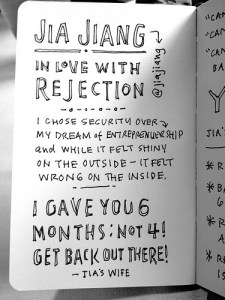 JIA JIANG
IN LOVE WITH
REJECTION
@jiajiang
I CHOSE SECURITY OVER
MY DREAM OF ENTREPRENEURSHIP
AND WHILE IT FELT SHINY
ON THE OUTSIDE - IT FELT
WRONG ON THE INSIDE.
I GAVE YOU 6
MONTHS: NOT 4!
GET BACK OUT THERE!
- JIA'S WIFE
"CAN
"CAN
"CAN
BA
Y
JIA'